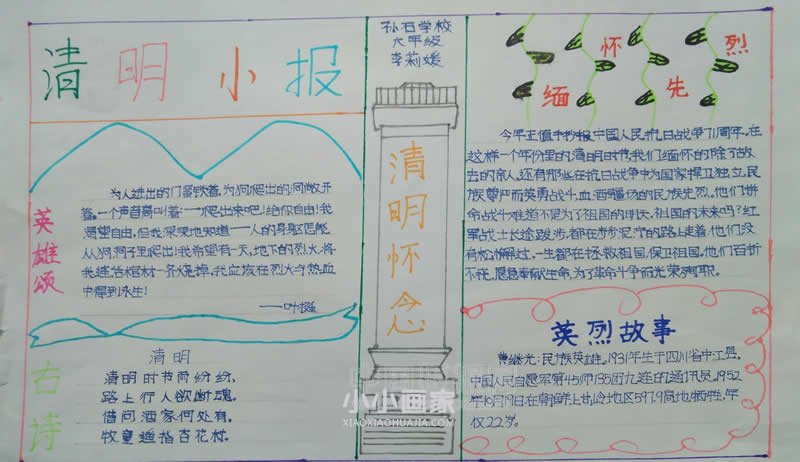 清明小报
英雄颂
为人进出的门紧锁着,为狗爬出的洞敞开
着。一个声音高叫着:——爬出来吧!给你自由!我
渴望自由,但我深深地知道——人的身躯怎能
从狗洞子里爬出!我希望有一天,地下的烈火,将
我连活棺材一齐烧掉,我应该在烈火与热血
中得到永生!
——叶挺
古诗
清明
清明时节雨纷纷,
路上行人欲断魂。
借问酒家何处有,
牧童遥指杏花村。
孙石学校
六年级
李莉媛
清明怀念
缅怀先烈
今年正值中国人民抗日战争71周年。在
这样一个年份里的清明时节,我们缅怀的除了故
去的亲人,还有那些在抗日战争中为国家捍卫独立,民
族尊严而英勇战斗,血洒疆场的民族先烈。他们拼
命战斗难道不是为了祖国的明天,祖国的未来吗?红
军战士长途跋涉,都在泞泥泞的路上走着,他们没
有松懈过,一生都在拯救祖国,保卫祖国。他们百折
不挠,愿意奉献生命,为了革命斗争而光荣
英烈故事
黄继光:民族英雄。1931年生于四川省中江县,
中国人民自愿军第45师135团九连的通讯员。1952
年10月19日在朝鲜上甘岭地区597.9高地牺牲,年
仅22岁。
小小画家
XIAOXIAOHUAJIA.COM